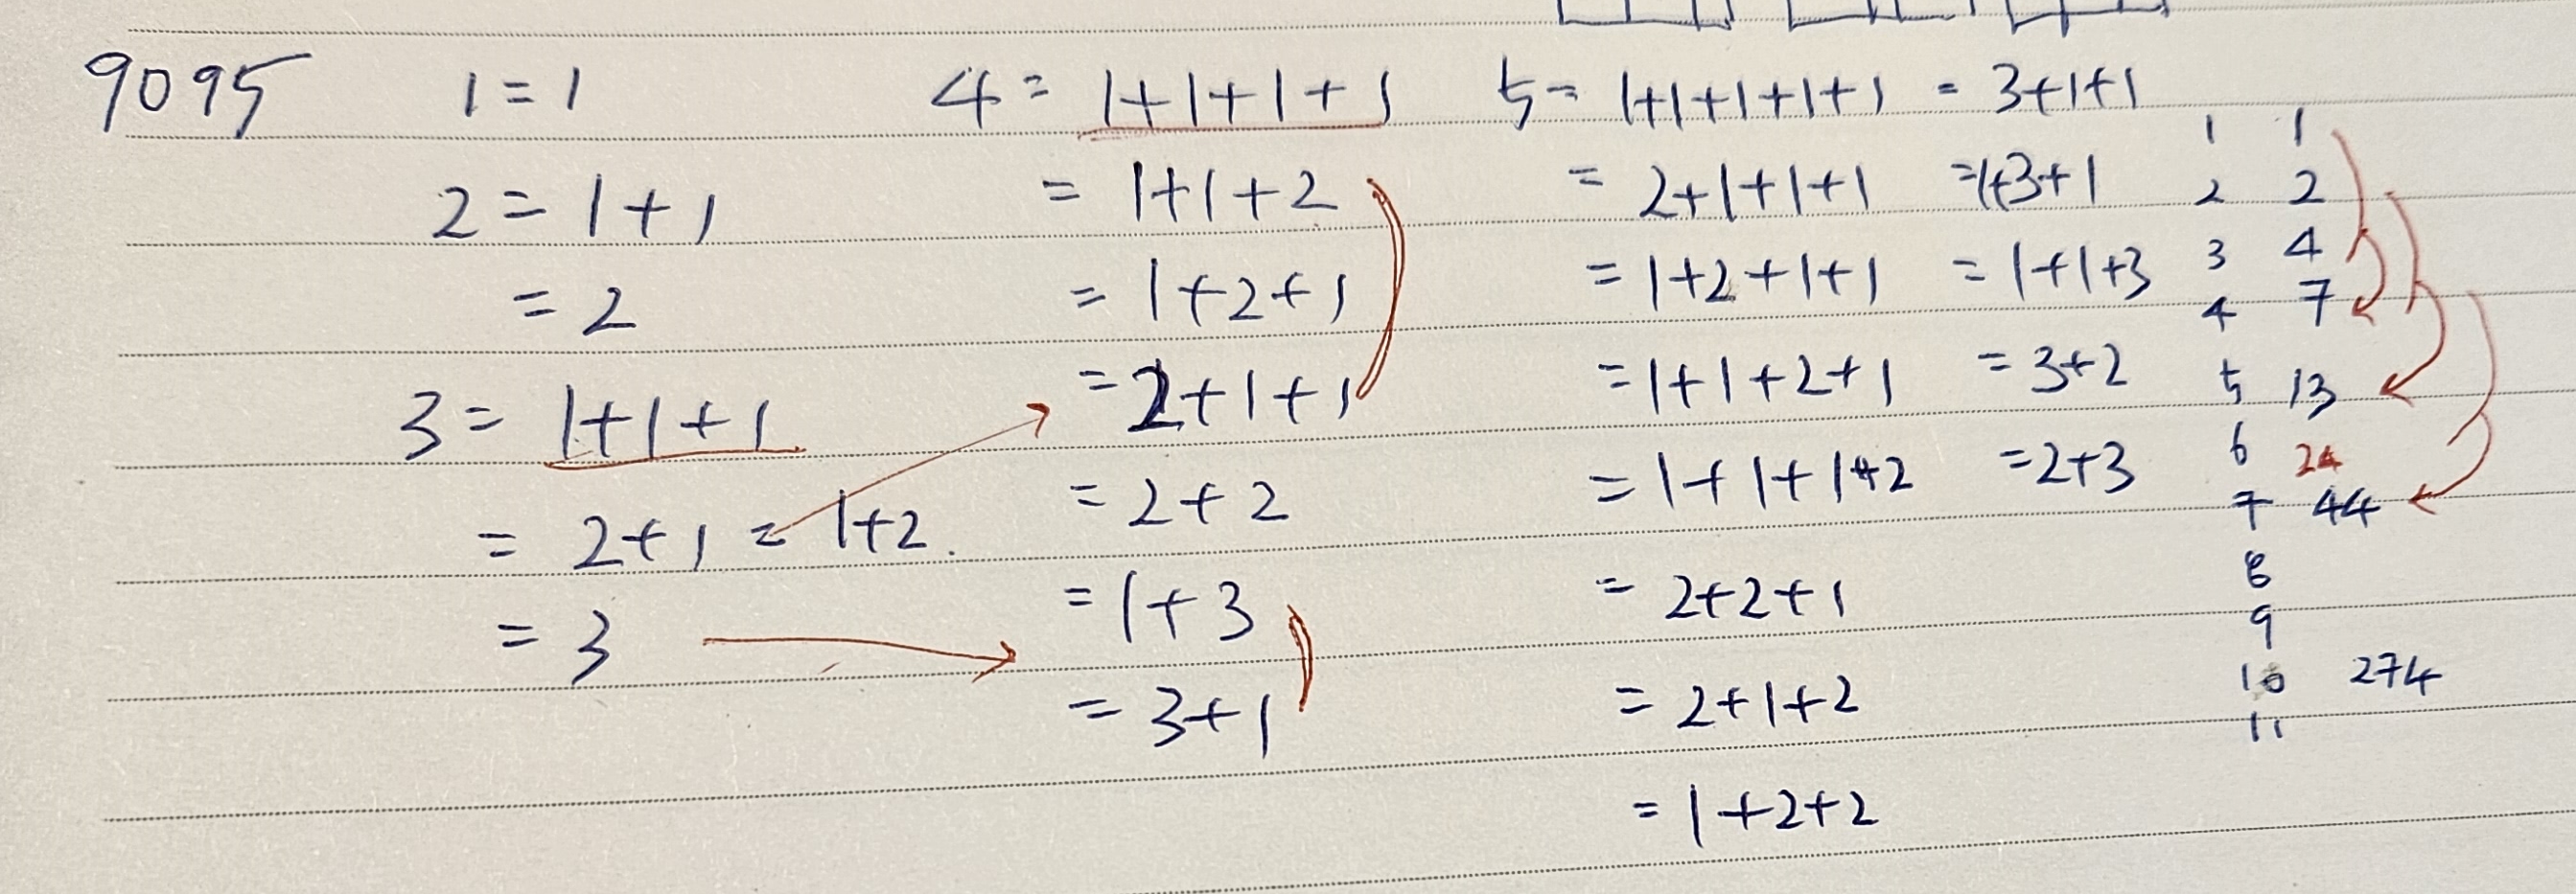 9095
1 = 1
2 = 1 + 1
= 2
3 = 1+1+1
= 2+1 = 1+2.
= 3
4 = 1+1+1+1
= 1+1+2
= 1+2+1
= 2+1+1
= 2+2
= 1+3
= 3+1
5 = 1+1+1+1+1 = 3+1+1
= 2+1+1+1 =1+3+1
= 1+2+1+1 = 1+1+3
= 1+1+2+1 = 3+2
= 1+1+1+2 = 2+3
= 2+2+1
= 2+1+2
= 1+2+2
1 1
2 2
3 4
4 7
5 13
6 24
7 44
8
9
10 274
11